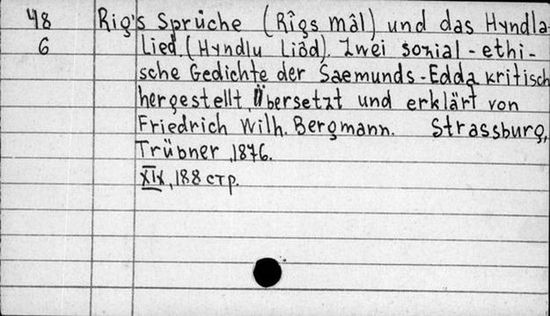 48 Rig's Sprüche (Rîgs mâl) und das Hyndla-
6 Lied. (Hyndlu Liôd). Zwei sozial-ethi-
sche Gedichte der Saemunds-Edda kritisch
hergestellt, Übersetzt und erklärt von
Friedrich Wilh. Bergmann. Strassburg,
Trübner, 1876.
XIX, 188 стр.